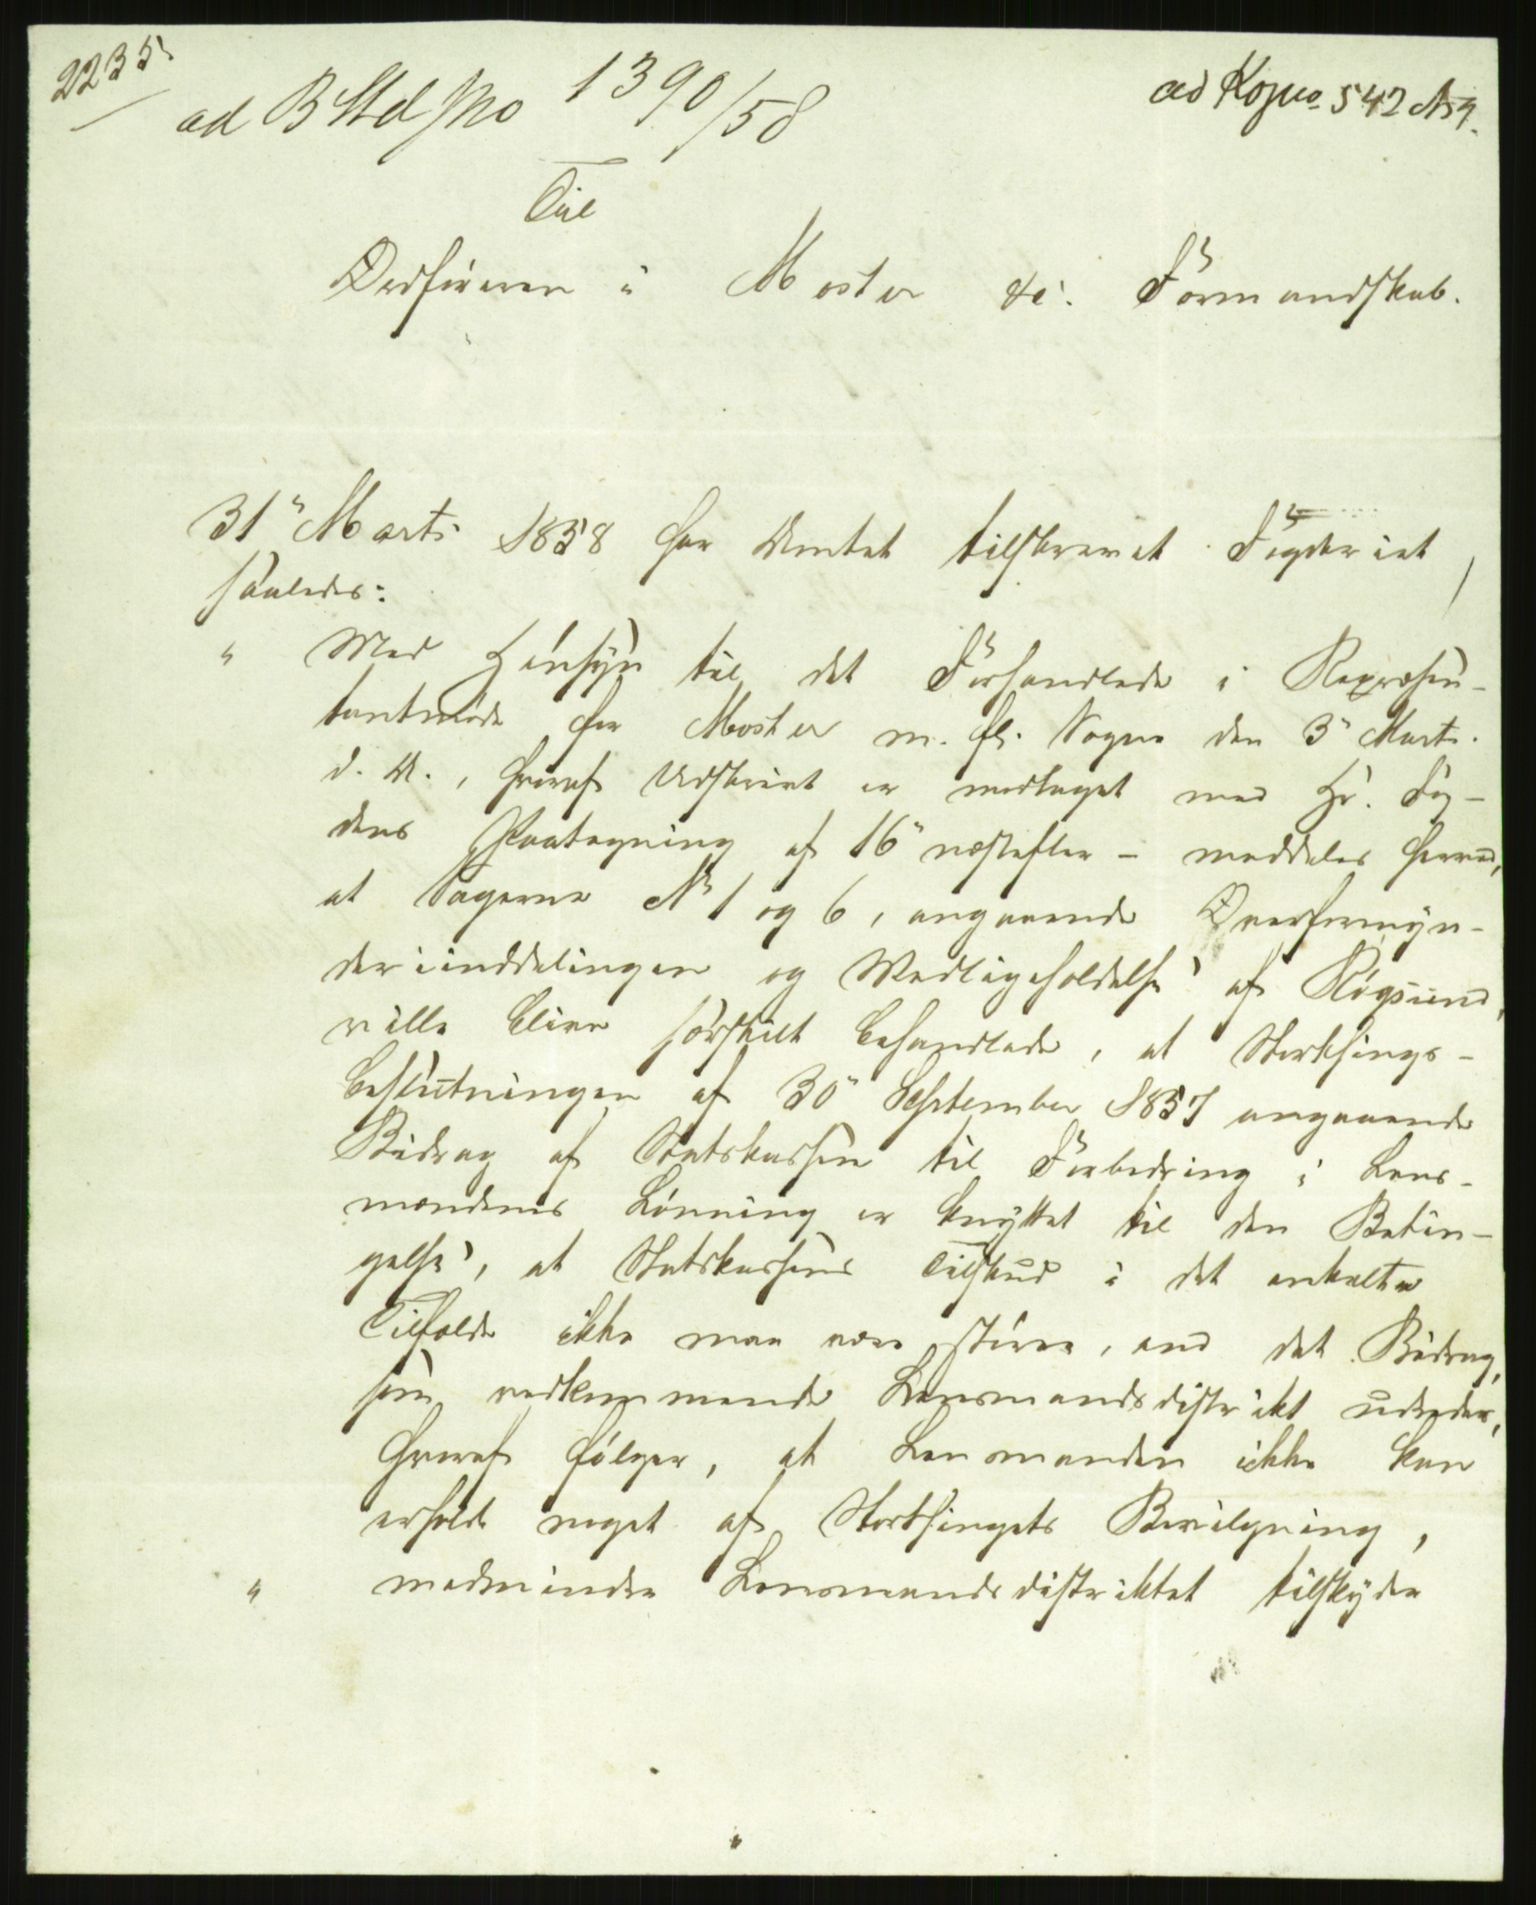 2235.
ad B Std No 1390/58
ad Kopno 542 A59.
Til
Ordføreren i Moster &c. Formandskab.
31" Marts 1858 har Amtet tilskrevet Fogderiet
saaledes:
" Med Hensyn til det Forhandlede i Repræsen-
tantmøde for Moster m. fl. Sogne den 3" Marts.
d. A., hvoraf Udskrivt er modtaget med Hr. Fog-
dens Paategning af 16" næstefter - meddeles herved,
at Sagerne No 1 og 6, angaaende Overformyn-
deriinddelingen og Vedligeholdelse af Røgsund,
ville blive særskilt behandlede, at Storthings-
beslutningen af 30" September 1857 angaaende
Bidrag af Statskassen til Forbedring i Lens-
mændenes Lønning er knyttet til den Betin-
gelse, at Statskassens Tilskud i det enkelte
Tilfælde ikke maa være større, end det Bidrag,
som vedkommende Lensmandsdistrikt udreder,
hvoraf følger, at Lensmanden ikke kan
erholde noget af Storthingets Bevilgning,
" medmindre Lensmandsdistriktet tilskyder